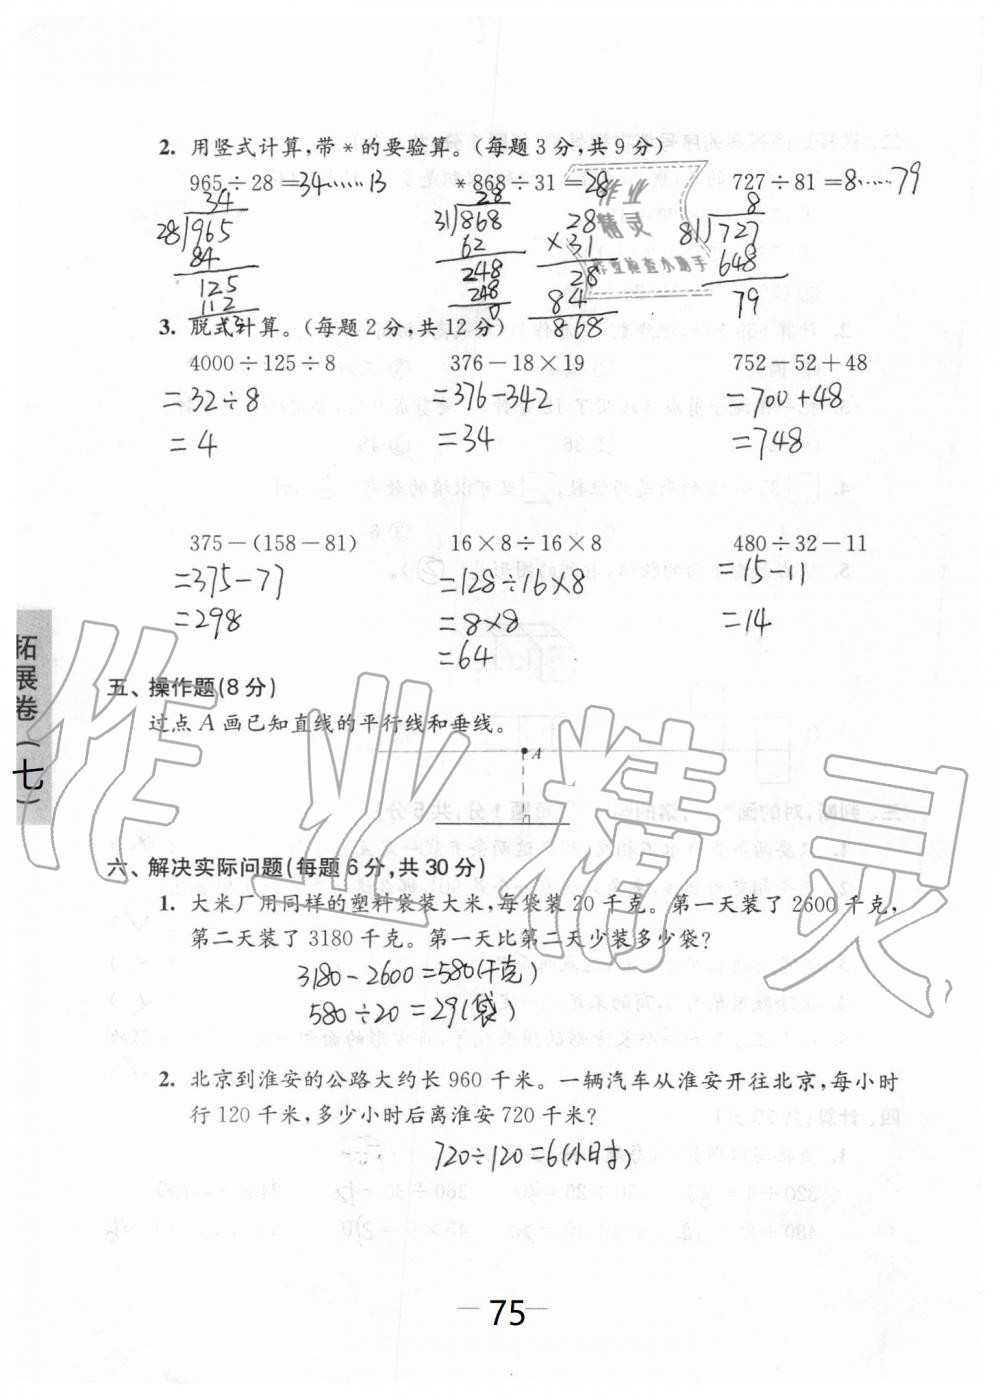 2. 用竖式计算,带*的要验算。(每题3分,共9分)
965÷28=34……13 *868÷31=28 727÷81=8……79
34 28 8
28)965 31)868 28 81)727
84 62 ×31 648
125 248 28 79
112 248 84
13 0 868
作业
精灵
作业检查小助手
3. 脱式计算。(每题2分,共12分)
4000÷125÷8 376-18×19 752-52+48
=32÷8 =376-342 =700+48
=4 =34 =748
375-(158-81) 16×8÷16×8 480÷32-11
=375-77 =128÷16×8 =15-11
=298 =8×8 =14
=64
拓展卷(七)
五、操作题(8分)
过点A画已知直线的平行线和垂线。
A
六、解决实际问题(每题6分,共30分)
1. 大米厂用同样的塑料袋装大米,每袋装20千克。第一天装了2600千克,
第二天装了3180千克。第一天比第二天少装多少袋?
3180-2600=580(千克)
580÷20=29(袋)
2. 北京到淮安的公路大约长960千米。一辆汽车从淮安开往北京,每小时
行120千米,多少小时后离淮安720千米?
720÷120=6(小时)
作业精灵
— 75 —